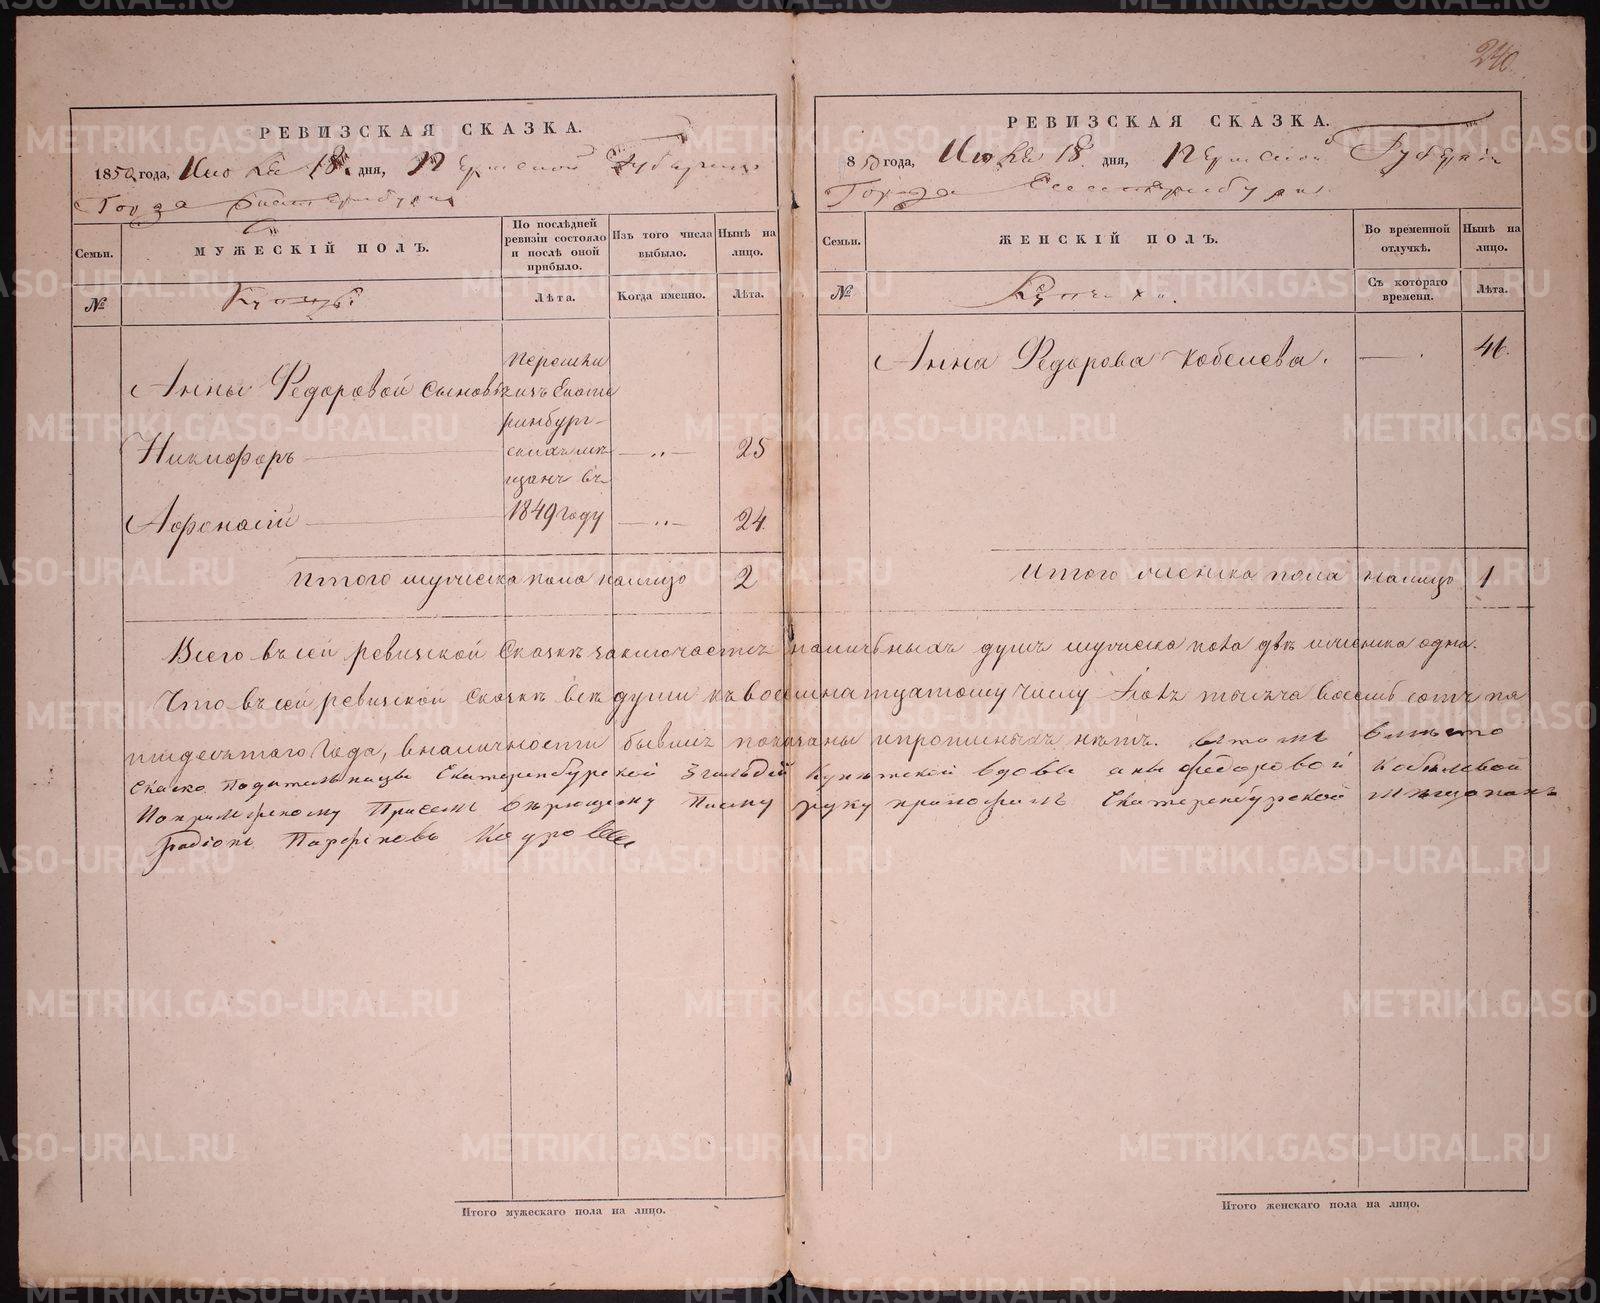 240.
РЕВИЗСКАЯ СКАЗКА.
1850 года, Июля 18 дня, Пермской Губернии
Города Екатеринбурга
Семьи.
МУЖЕСКІЙ ПОЛЪ.
По послѣдней ревизіи состояло и послѣ оной прибыло.
Изъ того числа выбыло.
Нынѣ на лицо.
№
Купцы
Лѣта.
Когда именно.
Лѣта.
Анны Федоровой сыновья
Никифоръ 25
Афонасій 24
Перешли
изъ Екате
ринбург-
скихъ мѣ
щанъ въ
1849 году
Итого мужеска пола налицо 2
РЕВИЗСКАЯ СКАЗКА.
850 года, Июля 18 дня, Пермской Губерніи
Города Екатеринбурга
Семьи.
ЖЕНСКІЙ ПОЛЪ.
Во временной отлучкѣ.
Нынѣ на лицо.
№
Съ котораго времени.
Лѣта.
Анна Федорова Кобелева. 46.
Итого женска пола налицо 1
Всего въ сей ревизской Сказкѣ заключается наличныхъ душъ мужеска пола двѣ и женска одна.
Что въ сей ревизской Сказкѣ всѣ души къ восемнатцатому числу Іюля тысяча восемь сотъ пя
тидесятаго Года, в наличности бывшіе показаны и прописныхъ нѣтъ.
Екатеринбурской 3 гильдіи Купеческой вдовы Анны Федоровой Кобелевой
руку приложилъ Екатеринбурской мѣщанинъ
Итого мужескаго пола на лицо.
Итого женскаго пола на лицо.
METRIKI.GASO-URAL.RU